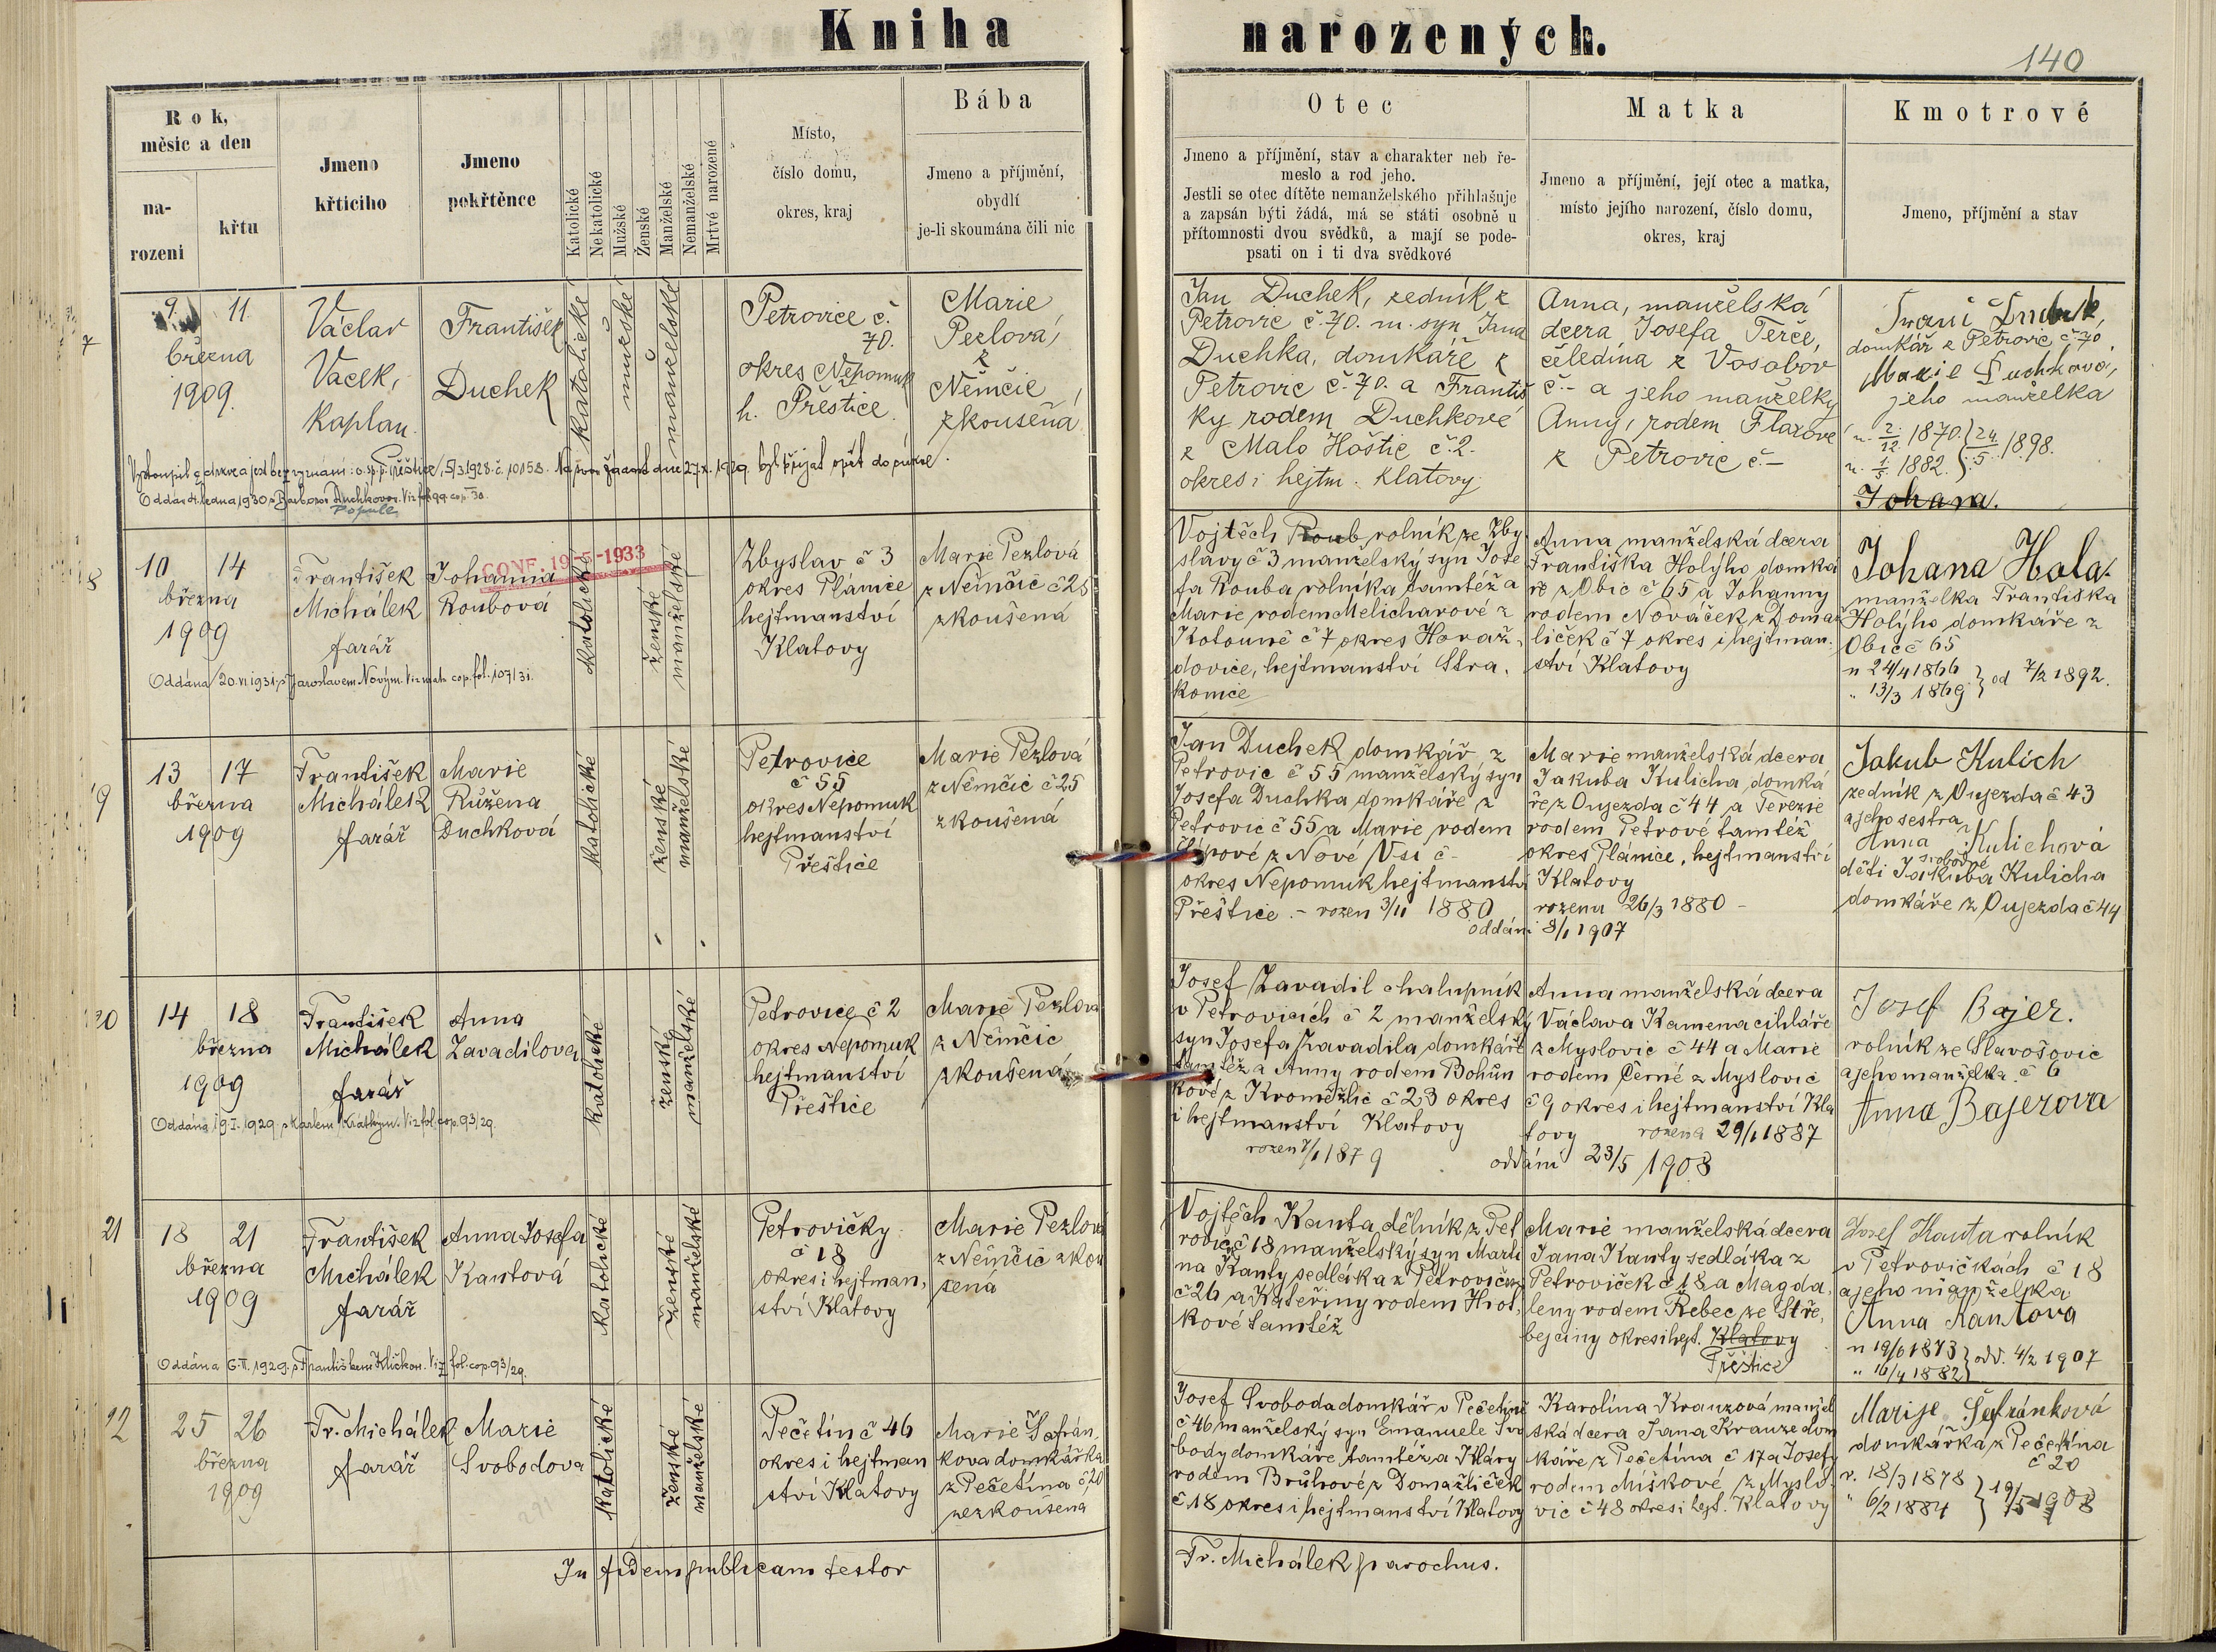 Kniha narozených.
140
Rok, měsíc a den
na-
rozeni
křtu
Jmeno
křticího
Jmeno
pokřtěnce
Katolické
Nekatolické
Mužské
Ženské
Manželské
Nemanželské
Mrtvé narozené
Místo,
číslo domu,
okres, kraj
Bába
Jmeno a příjmění,
obydlí
je-li skoumána čili nic
Otec
Jmeno a příjmění, stav a charakter neb ře-
meslo a rod jeho.
Jestli se otec dítěte nemanželského přihlašuje
a zapsán býti žádá, má se státi osobně u
přítomnosti dvou svědků, a mají se pode-
psati on i ti dva svědkové
Matka
Jmeno a příjmění, její otec a matka,
místo jejího narození, číslo domu,
okres, kraj
Kmotrové
Jmeno, příjmění a stav
7
9. 11.
března
1909.
Václav
Vacek,
kaplan.
František
Duchek
katolické
mužské
manželské
Petrovice č.
70.
okres Nepomuk
h. Přeštice
Marie
Pezlová,
z
Němčic
zkoušená
Jan Duchek, zedník z
Petrovic č. 70. m. syn Jana
Duchka, domkáře z
Petrovic č. 70. a Františ
ky rodem Duchkové
z Malo Hoštic č. 2.
okres i hejtm. Klatovy
Anna, manželská
dcera Josefa Terče,
čeledína z Vosobov
č. - a jeho manželky
Anny, rodem Flaxové
z Petrovic č. -
domkář z Petrovic č. 70,
Marie Duchková,
jeho manželka
n. 2/12. 1870. } 24/5. 1898.
n. 1/5. 1882.
Johana.
Vystoupil z církve a jest bez vyznání: o.s.p. Přeštice, 5/3 1928. č. 10158. byl přijat opět do církve.
Popule
8
10 14
března
1909
František
Michálek
farář
Johanna
Roubová
CONF. 19-5-1933
katolické
ženské
manželské
Zbyslav č 3
okres Plánice
hejtmanství
Klatovy
Marie Pezlová
z Němčic č 25
zkoušená
Vojtěch Roub rolník ze Zby
slavy č 3 manželský syn Jose
fa Rouba rolníka tamtéž a
Marie rodem Melicharové z
Kotouně č 7 okres Horaž-
dovice, hejtmanství Stra.
konice
Anna manželská dcera
Františka Holýho domká
ře z Obic č 65 a Johanny
rodem Nováček z Domaž
liček č 7 okres i hejtman.
ství Klatovy
Johana Hola.
manželka Františka
Holýho domkáře z
Obic č 65
n 24/4 1866 } od 7/2 1892.
" 13/3 1869
Oddána 20.VI.1931 s Jaroslavem Novým. Viz mat. cop. fol. 107/31.
9
13 17
března
1909
František
Michálek
farář
Marie
Růžena
Duchková
katolické
ženské
manželské
Petrovice
č 55
okres Nepomuk
hejtmanství
Přeštice
Marie Pezlová
z Němčic č 25
zkoušená
Jan Duchek domkář z
Petrovic č 55 manželský syn
Josefa Duchka domkáře z
Petrovic č 55 a Marie rodem
z Nové Vsi č -
okres Nepomuk hejtmanství
Přeštice. - rozen 3/11 1880
Marie manželská dcera
Jakuba Kulicha domká
ře z Oujezda č 44 a Terezie
rodem Petrové tamtéž
okres Plánice, hejtmanství
Klatovy
rozena 26/3 1880 -
oddáni 8/1 1907
Jakub Kulich
zedník z Oujezda č 43
a jeho sestra
Anna Kulichová
svobodné
děti Jakuba Kulicha
domkáře z Oujezda č 44
20
14 18
března
1909
František
Michálek
farář
Anna
Zavadilova
katolické
ženské
manželské
Petrovice č 2
okres Nepomuk
hejtmanství
Přeštice
Marie Pezlova
z Němčic
zkoušená
Josef Zavadil chalupník
v Petrovicích č 2 manželský
syn Josefa Zavadila domkáře
tamtéž a Anny rodem Bohůn
kové z Kroměžlic č 23 okres
i hejtmanství Klatovy
rozen 7/1 1879
Anna manželská dcera
Václava Kamena cihláře
z Myslovic č 44 a Marie
rodem Černé z Myslovic
č 9 okres i hejtmanství Kla
tovy rozena 29/1 1887
oddáni 23/5 1908
Josef Bajer.
rolník ze Slavošovic
a jeho manželka. č 6
Anna Bajerova
Oddána 19.I.1929. s Karlem Krátkým. Viz fol. cop. 93/29.
21
18 21
března
1909
František
Michálek
farář
Anna Josefa
Kantová
katolické
ženské
manželské
Petrovičky
č 18
okres i hejtman,
ství Klatovy
Marie Pezlová
z Němčic zkou
šená
Vojtěch Kanta, dělník z Pet
rovic č 18 manželský syn Marti
na Kanty sedláka z Petroviček
č 26 a Kateřiny rodem Hroš,
kové tamtéž
Marie manželská dcera
Jana Kanty sedláka z
Petroviček č 18 a Magda.
leny rodem Řebec ze Stře,
bejčiny okres i hejt. Klatovy
Přeštice
Josef Kanta rolník
v Petrovičkách č 18
a jeho manželka
Anna Kantova
n 19/6 1873 } odd. 4/2 1907
" 16/4 1882
Oddána 6.II.1929. s Františkem Kličkou. Viz fol. cop. 93/29.
22
25 26
března
1909
Fr. Michálek
farář
Marie
Svobodova
katolické
ženské
manželské
Pečetín č 46
okres i hejtman
ství Klatovy
Marie Šafrán,
kova domkářka
z Pečetína č 20
nezkoušena
Josef Svoboda domkář v Pečetíně
č 46 manželský syn Emanuele Svo
body domkáře tamtéž a Kláry
rodem Brůhové z Domažliček
č 18 okres i hejtmanství Klatovy
Karolína Krauzová manžel
ská dcera Jana Krauze dom
káře z Pečetína č 17 a Josefy
rodem Míškové z Myslo-
vic č 48 okres i hejt. Klatovy
Marije Šefránková
domkářka z Pečetína
č 20
n. 18/3 1878 } 19/5 1908
" 6/2 1884
In fidem publicam testor
Fr. Michálek parochus.